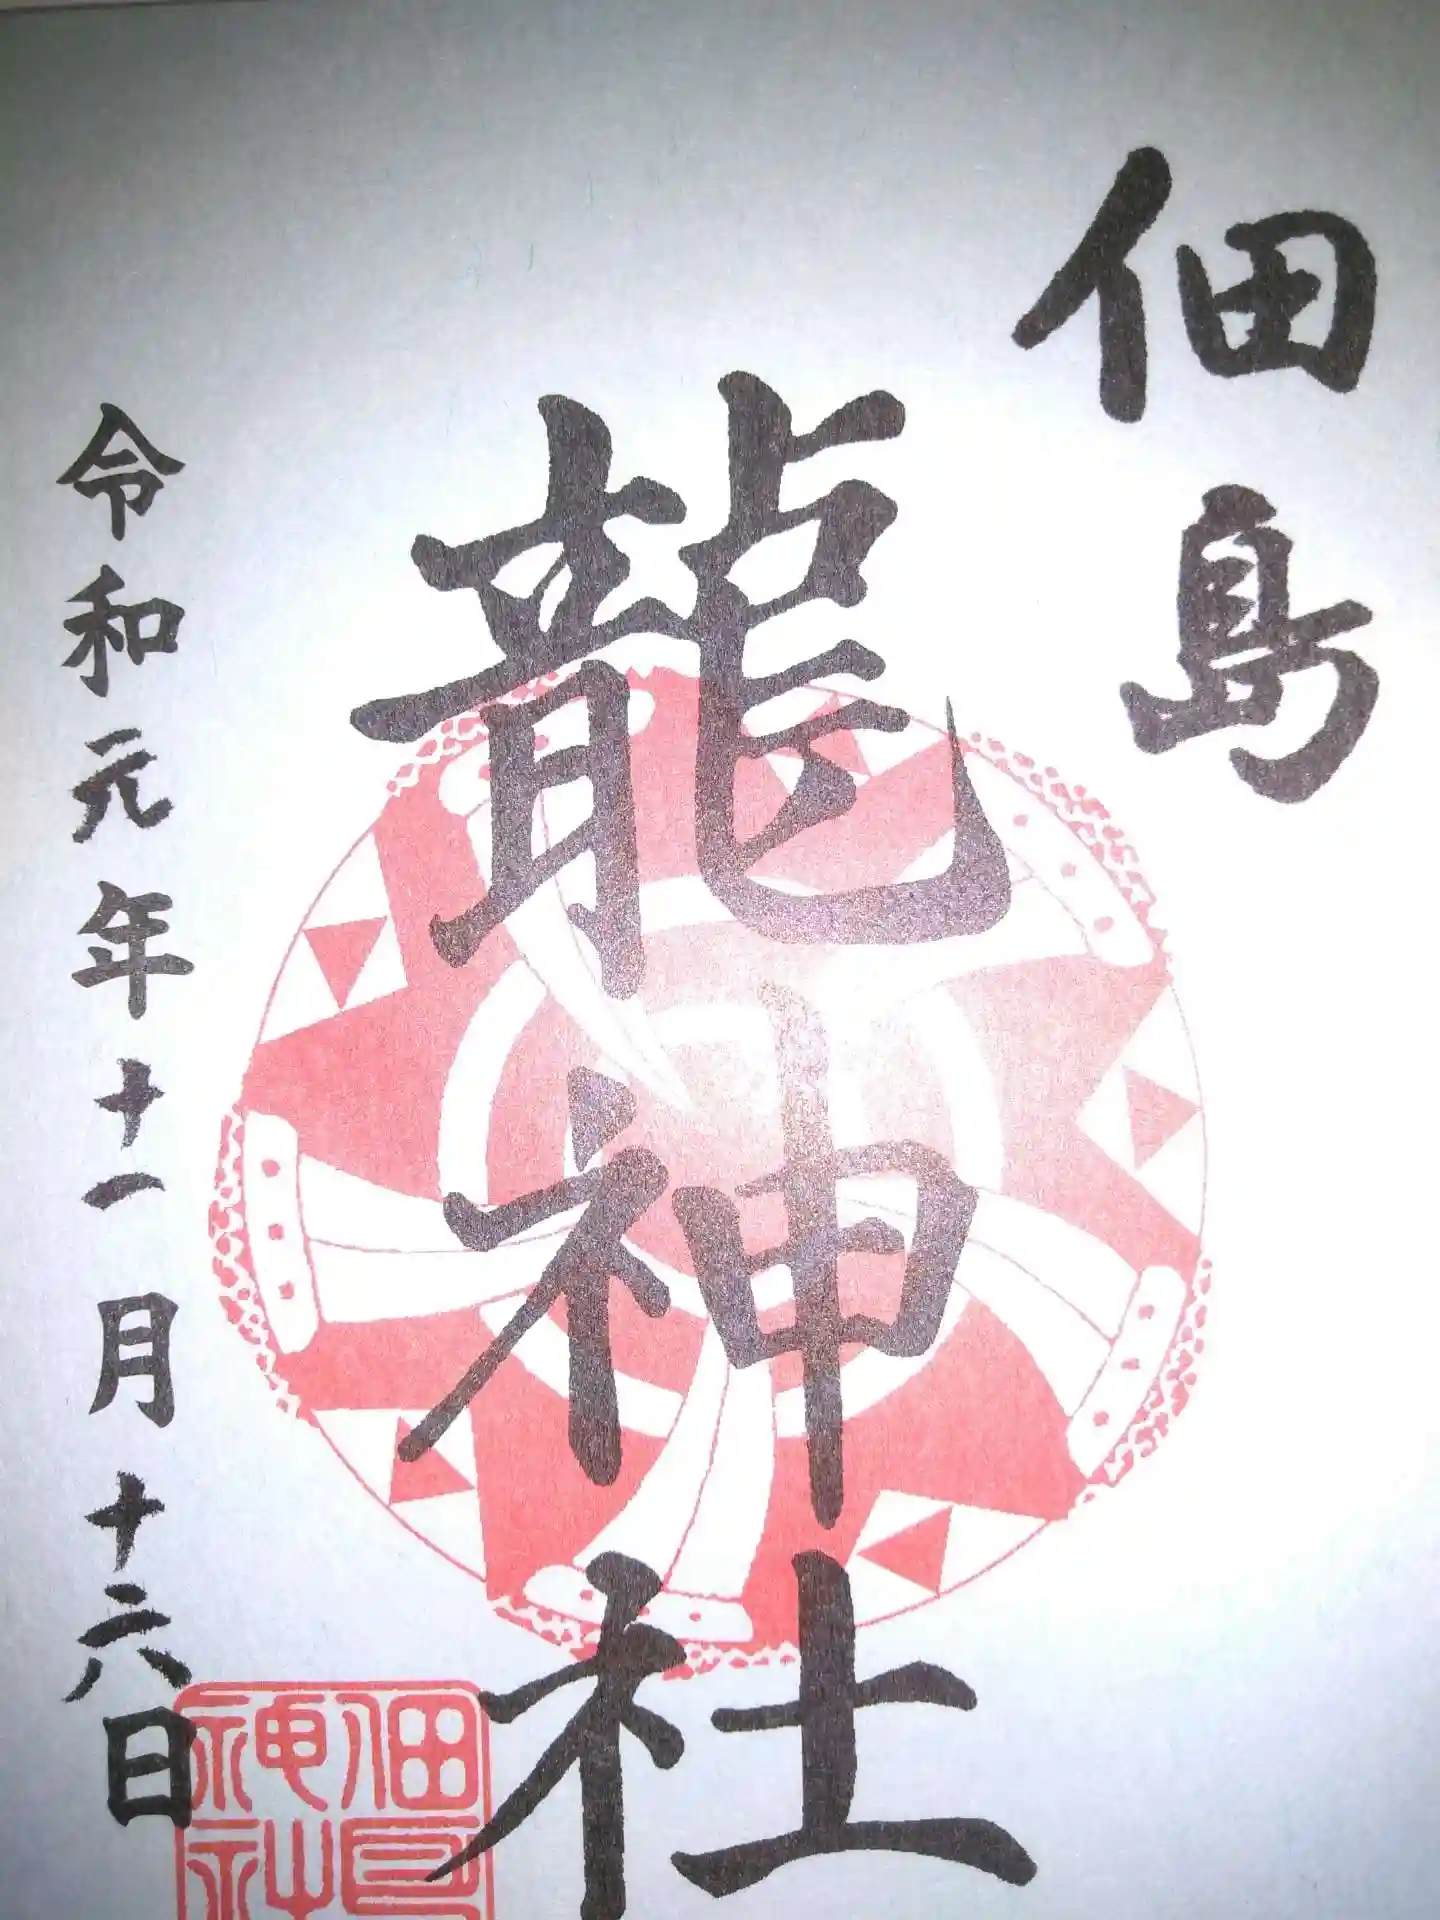 佃島
龍神社
令和元年十一月十六日
佃島
神社